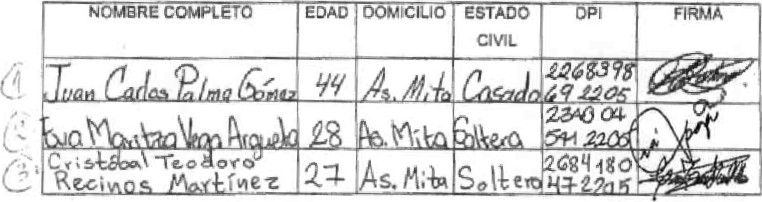 NOMBRE COMPLETO EDAD DOMICILIO ESTADO CIVIL DPI FIRMA
1 Juan Carlos Palma Gómez 44 As. Mita Casado 2268398 69 2205
2 Eva Maritza Vega Argueta 28 As. Mita Soltera 2340 04 541 2205
3 Cristóbal Teodoro Recinos Martínez 27 As. Mita Soltero 2684180 47 2205